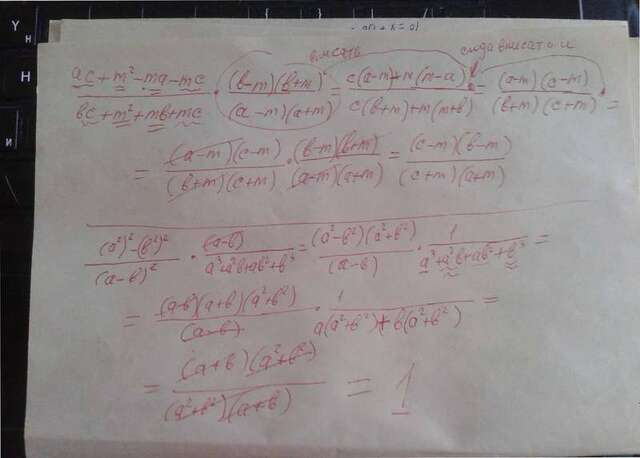 вписать
сюда впис этот и
\frac{ac+m^2-ma-mc}{вc+m^2+mв+mc} \cdot \frac{(в-m)(в+m)}{(a-m)(a+m)} = \frac{c(a-m)+m(m-a)}{c(в+m)+m(m+в)} = \frac{(a-m)(c-m)}{(в+m)(c+m)} =
= \frac{(a-m)(c-m)}{(в+m)(c+m)} \cdot \frac{(в-m)(в+m)}{(a-m)(a+m)} = \frac{(c-m)(в-m)}{(c+m)(a+m)}
\frac{(a^2)^2-(в^2)^2}{(a-в)^2} \cdot \frac{(a-в)}{a^3+a^2в+aв^2+в^3} = \frac{(a^2-в^2)(a^2+в^2)}{(a-в)} \cdot \frac{1}{a^3+a^2в+aв^2+в^3} =
= \frac{(a-в)(a+в)(a^2+в^2)}{(a-в)} \cdot \frac{1}{a(a^2+в^2)+в(a^2+в^2)} =
= \frac{(a+в)(a^2+в^2)}{(a^2+в^2)(a+в)} = 1